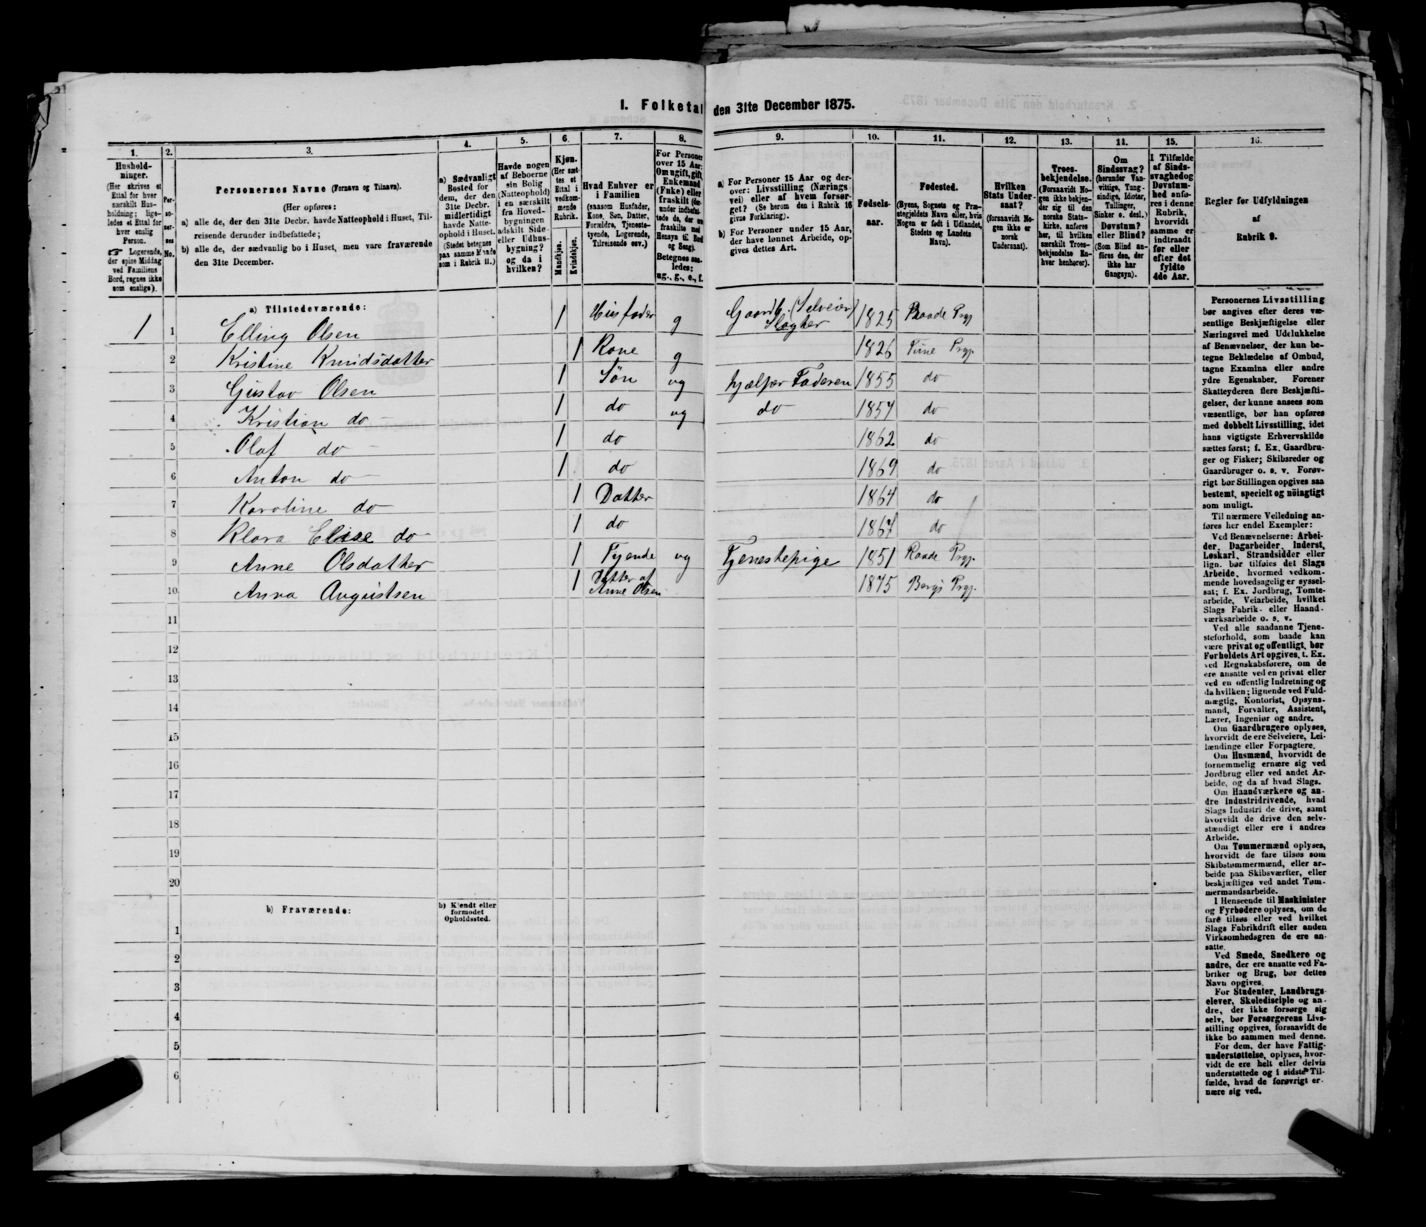 I. Folketal den 31te December 1875.
1.
Hushold-
ninger.
(Her skrives et
Ettal for hver
særskilt Hus-
holdning; lige-
ledes et Ettal for
hver enslig
Person.
☞ Logerende,
der spise Middag
ved Familiens
Bord, regnes ikke
som enslige).
2.
Per-
so-
ner-
nes
No.
3.
Personernes Navne (Fornavn og Tilnavn).
(Her opføres:
a) alle de, der den 31te Decbr. havde Natteophold i Huset, Til-
reisende derunder indbefattede;
b) alle de, der sædvanlig bo i Huset, men vare fraværende
den 31te December.
4.
a) Sædvanligt
Bosted for
dem, der den
31te Decbr.
midlertidigt
havde Natte-
ophold i Huset.
(Stedet betegnes
paa samme Maade
som i Rubrik 11.)
5.
Havde nogen
af Beboerne
sin Bolig
(Natteophold)
i en særskilt
fra Hoved-
bygningen
adskilt Side-
eller Udhus-
bygning?
og da i
hvilken?
6.
Kjøn.
(Her sæt-
tes et
Ettal i
vedkom-
mende
Rubrik.
Mandkjøn.
Kvindekjøn.
7.
Hvad Enhver er
i Familien
(saasom Husfader,
Kone, Søn, Datter,
Forældre, Tjeneste-
tyende, Logerende,
Tilreisende osv.)
8.
For Personer
over 15 Aar:
Om ugift, gift,
Enkemand
(Enke) eller
fraskilt
Betegnes saa-
ledes:
ug., g., e., f.
9.
a) For Personer 15 Aar og der-
over: Livsstilling (Nærings
vei) eller af hvem forsør-
get? (Se herom den i Rubrik 16
givne Forklaring).
b) For Personer under 15 Aar,
der have lønnet Arbeide, op-
gives dettes Art.
10.
Fødsels-
aar.
11.
Fødested.
(Byens, Sognets og Præ-
stegjeldets Navn eller, hvis
Nogen er født i Udlandet,
Stedets og Landets
Navn).
12.
Hvilken
Stats Under-
saat?
(forsaavidt No-
gen ikke er
norsk
Undersaat).
13.
Troes-
bekjendelse.
(Forsaavidt No-
gen ikke bekjen-
der sig til den
norske Stats-
kirke, anføres
her, til hvilken
særskilt Troes-
bekjendelse En-
hver henhører).
14.
Om
Sindssvag?
(herunder Van-
vittige, Tung-
sindige, Idioter,
Tullinger,
Sinker o. desl.)
Døvstum?
eller Blind?
(Som Blind an-
føres den, der
ikke har
Gangsyn).
15.
I Tilfælde
af Sinds-
svaghed og
Døvstum-
hed anfø-
res i denne
Rubrik,
hvorvidt
samme er
indtraadt
før eller
efter det
fyldte
4de Aar.
16.
Regler for Udfyldningen
af
Rubrik 9.
a) Tilstedeværende:
1 1 Elling Olsen 1 Husfader g Gaardb. (Selveier) Slagter 1825 Raade Prgj
2 Kristine Knudsdatter 1 Kone g 1826 Tune Prgj.
3 Gustav Olsen 1 Søn ug hjælper Faderen 1855 do
4 Kristian do 1 do ug do 1857 do
5 Olaf do 1 do 1862 do
6 Anton do 1 do 1869 do
7 Karoline do 1 Datter 1864 do
8 Klara Elise do 1 do 1867 do
9 Anne Olsdatter 1 Tyende ug Tjenestepige 1851 Raade Prgj.
10 Anna Augustsen 1 Datter af Anne Olsen 1875 Bergs Prgj.
11
12
13
14
15
16
17
18
19
20
b) Fraværende:
b) Kjendt eller
formodet
Opholdssted.
1
2
3
4
5
6
Personernes Livsstilling
bør angives efter deres væ-
sentlige Beskjæftigelse eller
Næringsvei med Udelukkelse
af Benævnelser, der kun be-
tegne Beklædelse af Ombud,
tagne Examina eller andre
ydre Egenskaber. Forener
Skatteyderen flere Beskjæfti-
gelser, der kunne ansees som
væsentlige, bør han opføres
med dobbelt Livsstilling, idet
hans vigtigste Erhvervskilde
sættes først; f. Ex. Gaardbru-
ger og Fisker; Skibsreder og
Gaardbruger o. s. v. Forøv-
rigt bør Stillingen opgives saa
bestemt, specielt og nöiagtigt
som muligt.
Til nærmere Veiledning an-
føres her endel Exempler:
Ved Benævnelserne: Arbei-
der, Dagarbeider, Inderst,
Løskarl, Strandsidder eller
lign. bør tilføies det Slags
Arbeide, hvormed vedkom-
mende hovedsagelig er syssel-
sat; f. Ex. Jordbrug, Tomte-
arbeide, Veiarbeide, hvilket
Slags Fabrik- eller Haand-
værksarbeide o. s. v.
Ved alle saadanne Tjene-
steforhold, som baade kan
være privat og offentligt, bør
Forholdets Art opgives, t. Ex.
ved Regnskabsførere, om de
ere ansatte ved en privat eller
ved en offentlig Indretning og
da hvilken; lignende ved Fuld-
mægtig, Kontorist, Opsyns-
mand, Forvalter, Assistent,
Lærer, Ingeniør og andre.
Om Gaardbrugere oplyses,
hvorvidt de ere Selveiere, Lei-
lændinge eller Forpagtere.
Om Husmænd, hvorvidt de
fornemmelig ernære sig ved
Jordbrug eller ved andet Ar-
beide, og da af hvad Slags.
Om Haandværkere og an-
dre Industridrivende, hvad
Slags Industri de drive, samt
hvorvidt de drive den selv-
stændigt eller ere i andres
Arbeide.
Om Tømmermænd oplyses,
hvorvidt de fare tilsøs som
Skibstømmermænd, eller ar-
beide paa Skibsværfter, eller
beskjæftiges ved andet Tøm-
mermandsarbeide.
I Henseende til Maskinister
og Fyrbødere oplyses, om de
fare tilsøs eller ved hvilket
Slags Fabrikdrift eller anden
Virksomhedsgren de ere an-
satte.
Ved Smede, Snedkere og
andre, der ere ansatte ved Fa-
briker og Brug, bør dettes
Navn opgives.
For Studenter, Landbrugs-
elever, Skoledisciple og an-
dre, der ikke forsørge sig
selv, bør Forsørgerens Livs-
stilling opgives, forsaavidt de
ikke bo sammen med denne.
For dem, der have Fattig-
understøttelse, oplyses, hvor-
vidt de ere helt eller delvis
understøttede og i sidste Til-
fælde, hvad de forøvrigt er-
nære sig ved.